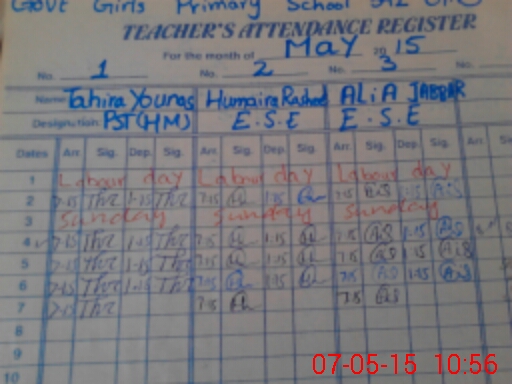 Govt Girls Primary School
TEACHER'S ATTENDANCE REGISTER
For the month of May 2015
No. 1 No. 2 No. 3
Name Tahira Younas Humaira Rashed ALiA JABBAR
Designation: PST(HM) E.S.E E.S.E
Dates Arr. Sig. Dep. Sig. Arr. Sig. Dep. Sig. Arr. Sig. Dep. Sig. Arr.
1 Labour day Labour day Labour day
2 7-15 1-15 7:15 1:15 7:15 AS 1:15 AS
3 Sunday Sunday Sunday
4 7-15 1-15 7:15 1:15 7:15 AS 1:15 AS
5 7-15 1-15 7:15 1:15 7:15 AS 1:15 AS
6 7-15 1-15 7:15 1:15 7:15 AS 1:15 AS
7 7:15 7:15 AS
8
9
10
07-05-15 10:56